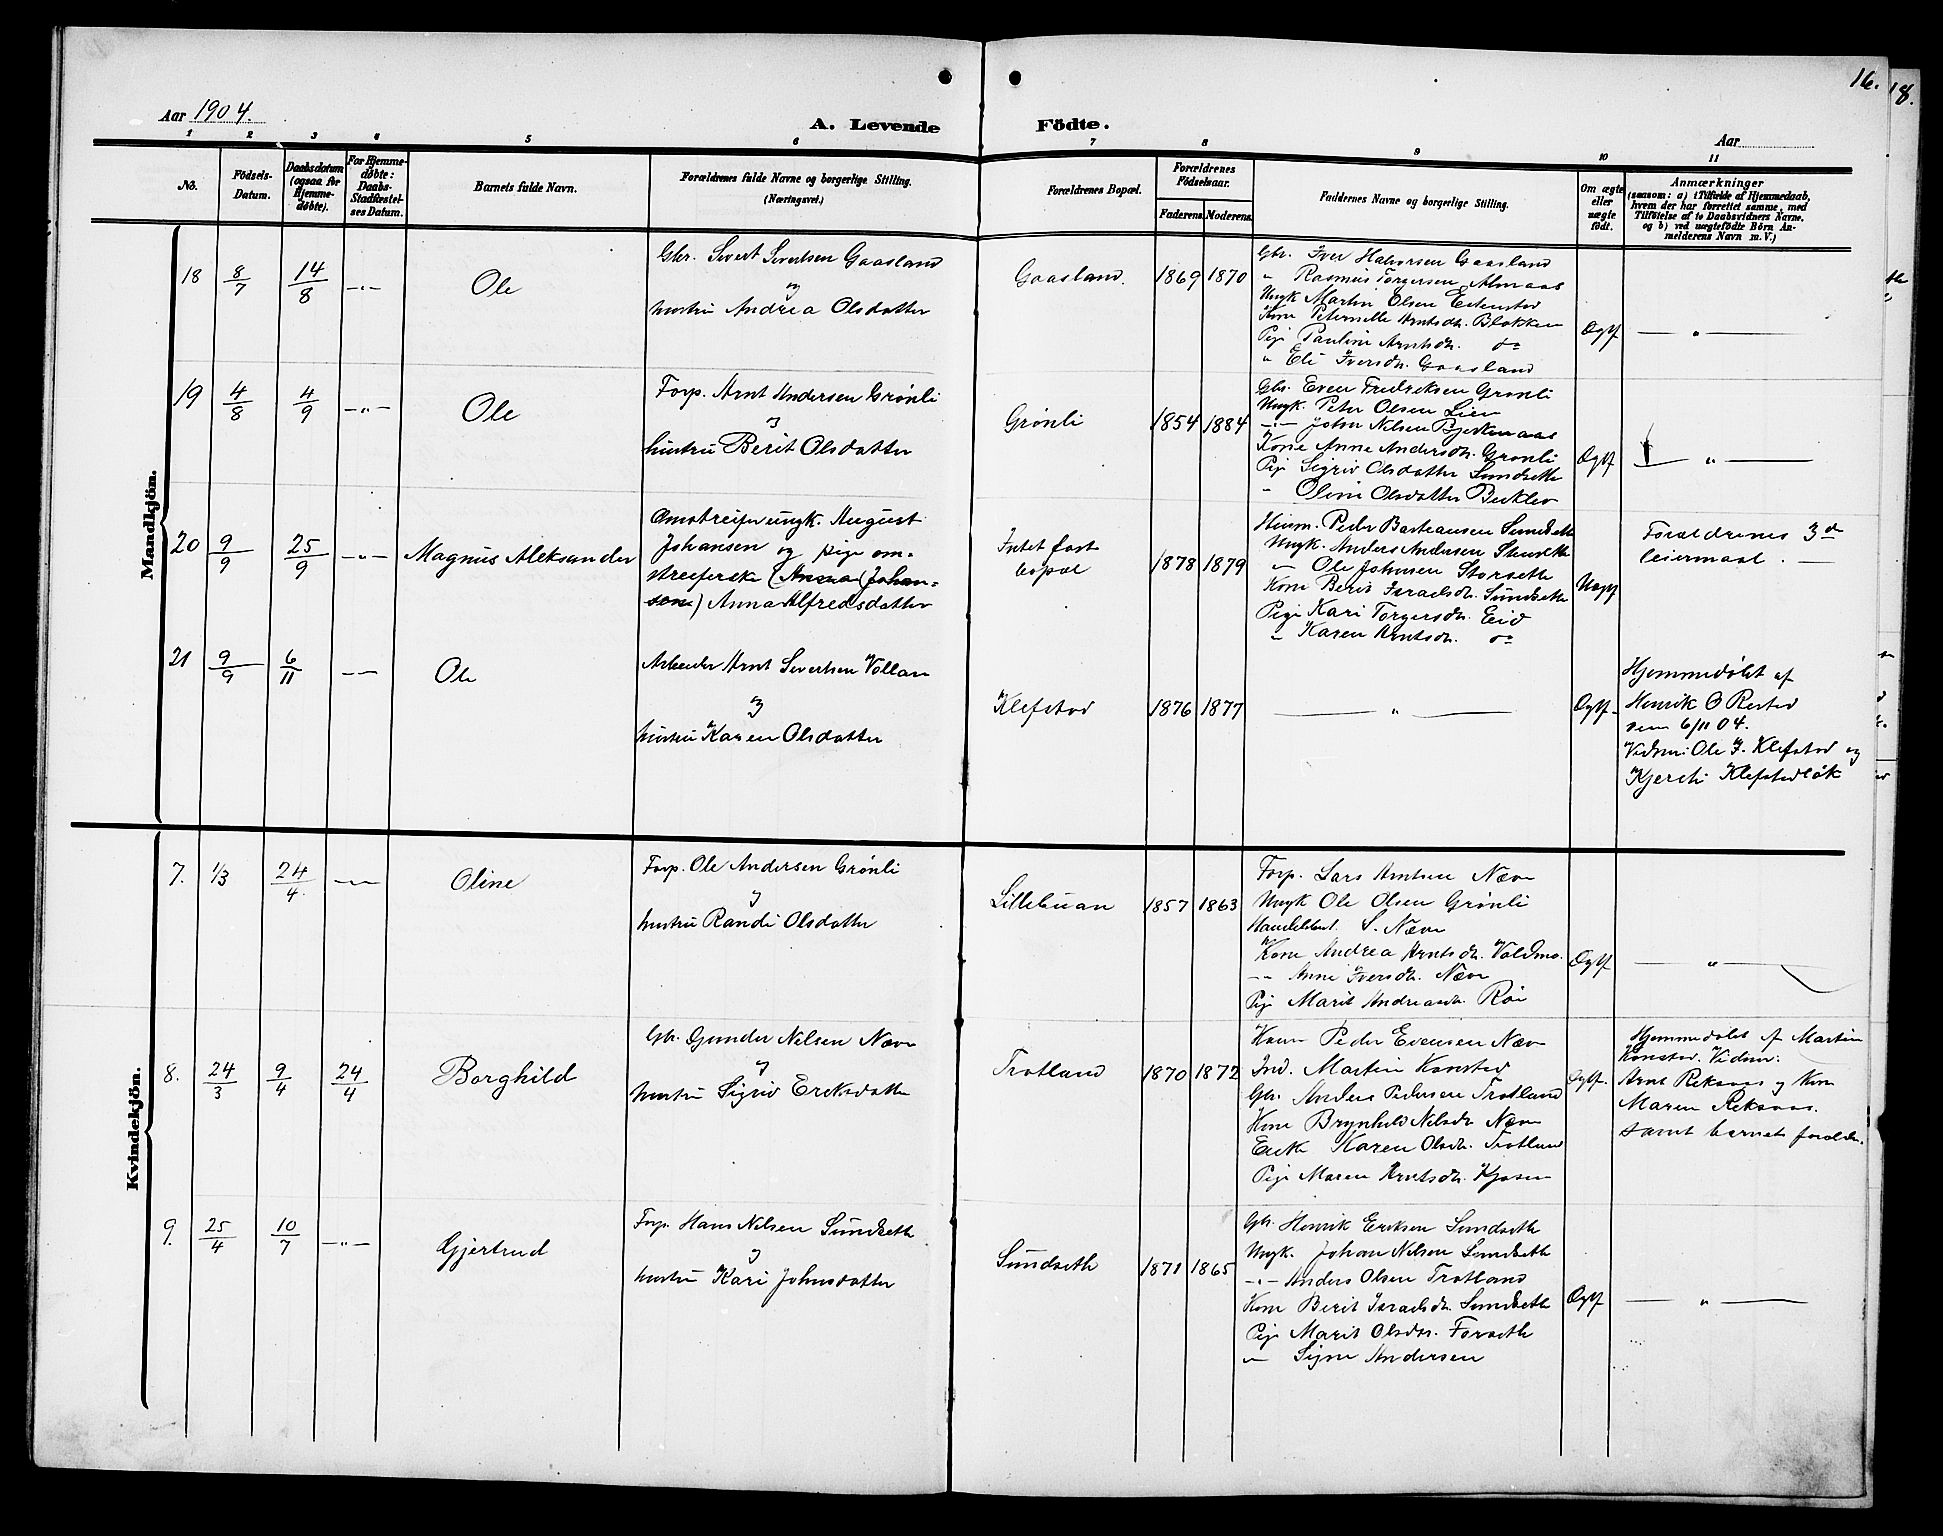 16.
18.
Aar 1904.
A. Levende Födte.
Aar
1 2 3 4 5 6 7 8 9 10 11
No.
Födsels-
Datum.
Daabsdatum
(ogsaa for
Hjemme-
döbte).
For Hjemme-
döbte:
Daabs-
Stadfæstel-
ses Datum.
Barnets fulde Navn.
Forældrenes fulde Navne og borgerlige Stilling.
(Næringsvei.)
Forældrenes Bopæl.
Forældrenes
Födselsaar.
Faderens. Moderens.
Faddernes Navne og borgerlige Stilling.
Om ægte
eller
uægte
födt.
Anmærkninger
(saasom: a) i Tilfælde af Hjemmedaab,
hvem der har forrettet samme, med
Tilföielse af to Daabsvidners Navne,
og b) ved uægtefödte Börn An-
melderens Navn m. V.)
Mandkjön.
18 8/7 14/8 —„— Ole
Gbr. Sivert Sivertsen Gaasland
og
hustru Andrea Olsdatter
Gaasland. 1869 1870
Gbr. Iver Halvorsen Gaasland
„ Rasmus Torgersen Almaas
Ungk Martin Olsen
Kone Peternelle Arntsdtr. Blokken
Pige Pauline Arntsdtr. do
„ Eli Iversdtr. Gaasland
Ægtf
— „ —
19 4/8 4/9 —„— Ole
Forp. Arnt Andersen Grønli
og
hustru Berit Olsdatter
Grønli 1854 1884
Gbr. Even Fredriksen Grønli
Ungk. Peter Olsen Lien
—„— John Nilsen Bjerkenaas
Kone Anne Andersdtr. Grønli
Pige Sigrid Olsdatter Sundseth
„ Oline Olsdatter
Ægtf
— „ —
20 9/9 25/9 —„— Magnus Aleksander
Omstreifer ungk. August
Johansen og pige om-
streiferske (Anna (Johan-
sen) Anna Alfredsdatter
Intet fast
bopæl
1878 1879
Husm. Peder Bastiansen Sundseth
Ungk. Anders Andersen
„ Ole Johnsen Storseth
Kone Berit Israelsdtr. Sundseth
Pige Kari Torgersdtr. Eid
„ Karen Arntsdtr. do
Uægtf
Forældrenes 3die
leiermaal. —
21 9/9 6/11 — Ole
Arbeider Arnt Sivertsen Vollan
og
hustru Karen Olsdatter
Klefstad 1876 1877
— „ —
Ægtf.
Hjemmedøbt af
Henrik O Restad
den 6/11 04.
Vidner: Ole J. Klefstad og
Kjersti Klefstadløk
Kvindekjön.
7. 1/3 24/4 — Oline
Forp. Ole Andersen Grønli
og
hustru Randi Olsdatter
Lillebuan 1857 1863
Forp. Lars Arntsen Næve
Ungk Ole Olsen Grønli
Handelsbet. S. Næve
Kone Andrea Arntsdtr. Voldmo.
— Anne Iversdtr. Næve
Pige Marit Andreasdtr. Røe
Ægtf
— „ —
8. 24/3 9/4 24/4 Borghild
Gbr. Gunder Nilsen Næve
og
hustru Sigrid Eriksdatter
Trotland 1870 1872
Kaarm Peder Evensen Næve
Ind. Martin Konstad
Gbr. Anders Pedersen Trotland
Kone Brynhild Nilsdtr Næve
Enke Karen Olsdtr. Trotland
Pige Maren Arntsdtr. Kjøsen
Ægtf.
Hjemmedøbt af Martin
Konstad. Vidner:
Arnt Reksaas og Kone
Maren Reksaas.
samt barnets foreldre.
9. 25/4 10/7 —„— Gjertrud
Forp. Hans Nilsen Sundseth
og
hustru Kari Johnsdatter
Sundseth 1871 1865
Gbr. Henrik Eriksen Sundseth
Ungk. Johan Nilsen Sundseth
—„— Anders Olsen Trotland
Kone Berit Israelsdtr. Sundseth
Pige Marit Olsdtr. Forseth
„ Signe Andersen
Ægtf
— „ —